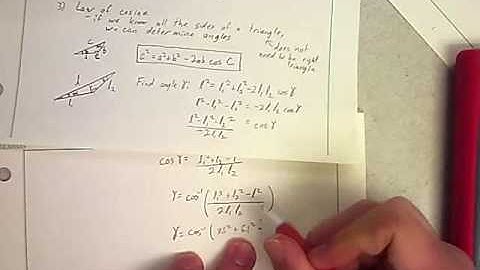 3) Law of cosine
- if we know all the sides of a triangle,
we can determine angles
does not
need to be right
triangle
c² = a² + b² - 2ab cos C
Find angle γ: l² = l₁² + l₂² - 2l₁l₂ cosγ
l² - l₁² - l₂² = -2l₁l₂ cosγ
l² - l₁² - l₂² / -2l₁l₂ = cosγ
cosγ = l₁² + l₂² - l / 2l₁l₂
γ = cos⁻¹ ( l₁² + l₂² - l² / 2l₁l₂ )
γ = cos⁻¹ (